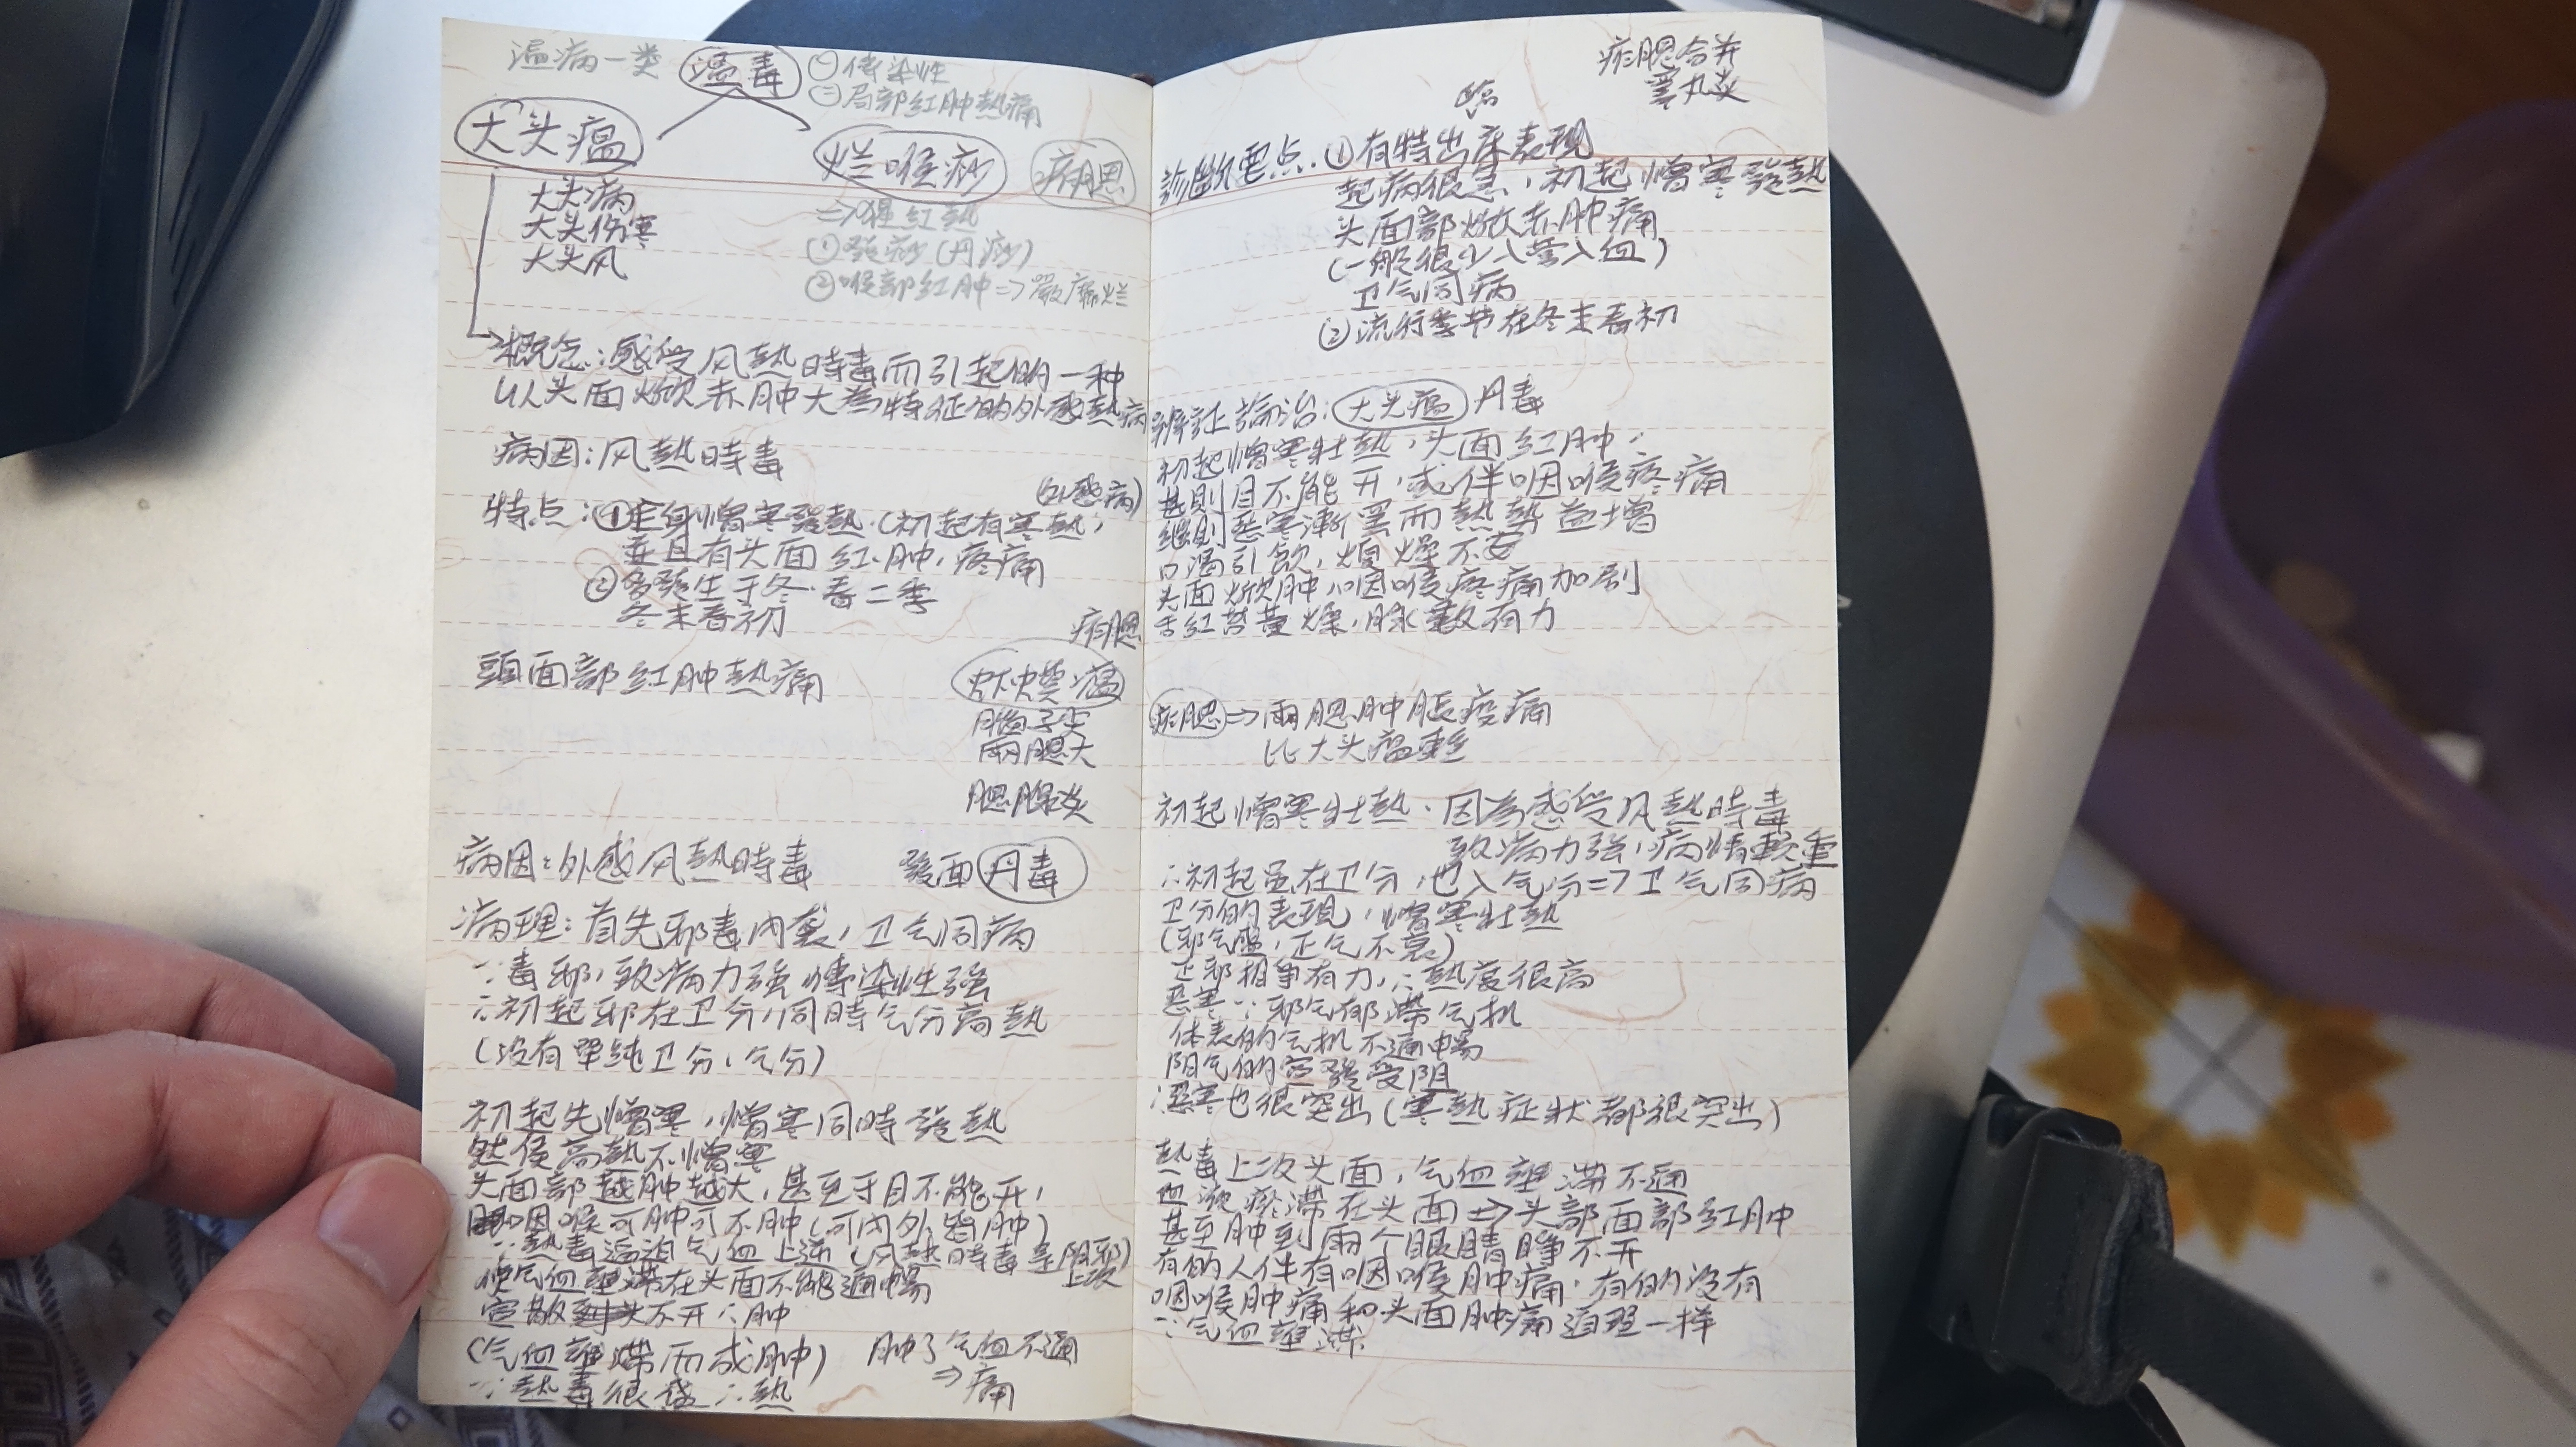 温病一类 温毒 ㊀传染性
㊁局部红肿热痛
大头瘟 烂喉痧 痄腮
大头病
大头伤寒
大头风
⇒猩红热
①發痧(丹痧)
②喉部红肿⇒ 烂
概念:感受风热時毒而引起的一种
以头面焮赤肿大為特征的外感热病
病因:风熱時毒
(外感病)
特点:①全身憎寒發熱(初起有寒熱,
並且有头面红肿,疼痛
②多發生于冬.春二季
冬末春初
頭面部红肿熱痛
痄腮
虾蟆瘟
腮子尖
兩腮大
腮腺炎
病因:外感风熱時毒 發面丹毒
病理:首先邪毒内襲,卫气同病
∵毒邪,致病力强,傳染性强
∴初起邪在卫分,同時气分高熱
(没有單纯卫分、气分)
初起先憎寒,憎寒同時發熱
然後高熱不憎寒
头面部越肿越大,甚至于目不能开,
咽喉可肿可不肿(可内外皆肿)
∵熱毒逼迫气血上逆(风熱時毒是阳邪)
上攻
使气血壅滞在头面不能通暢
宣散不开∴肿
(气血壅滞而成肿) 肿了气血不通
⇒痛
∵熱毒很盛∴熱
痄腮合并
睾丸炎
临
診断要点.①有特出床表现
起病很急,初起憎寒發熱
头面部焮赤肿痛
(一般很少入营入血)
卫气同病
②流行季节在冬末春初
辨証論治:大头瘟 丹毒
初起憎寒壮熱,头面红肿,
甚則目不能开,或伴咽喉疼痛
継則惡寒漸罢而熱勢益增
口渴引飲,烦燥不安
头面焮肿,咽喉疼痛加剧
舌红苔黄燥,脉數有力
痄腮⇒兩腮肿胀疼痛
比大头瘟軽
初起憎寒壮熱.因為感受风熱時毒
致病力强,病情較重
∴初起虽在卫分,也入气分⇒卫气同病
卫分的表现,憎寒壮熱
(邪气盛,正气不衰)
正邪相争有力,∴熱度很高
惡寒∵邪气郁滞气机
体表的气机不通暢
阳气的宣發受阻
∴惡寒也很突出(寒熱症状都很突出)
熱毒上攻头面,气血壅滞不通
血液瘀滞在头面⇒头部面部红肿
甚至肿到兩个眼睛睁不开
有的人伴有咽喉肿痛.有的没有
咽喉肿痛和头面肿痛道理一样
∵气血壅滞